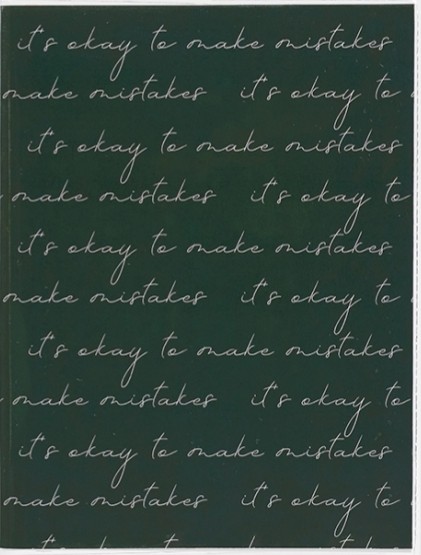 it's okay to make mistakes
make mistakes it's okay to
it's okay to make mistakes
make mistakes it's okay to
it's okay to make mistakes
make mistakes it's okay to
it's okay to make mistakes
make mistakes it's okay to
it's okay to make mistakes
make mistakes it's okay to